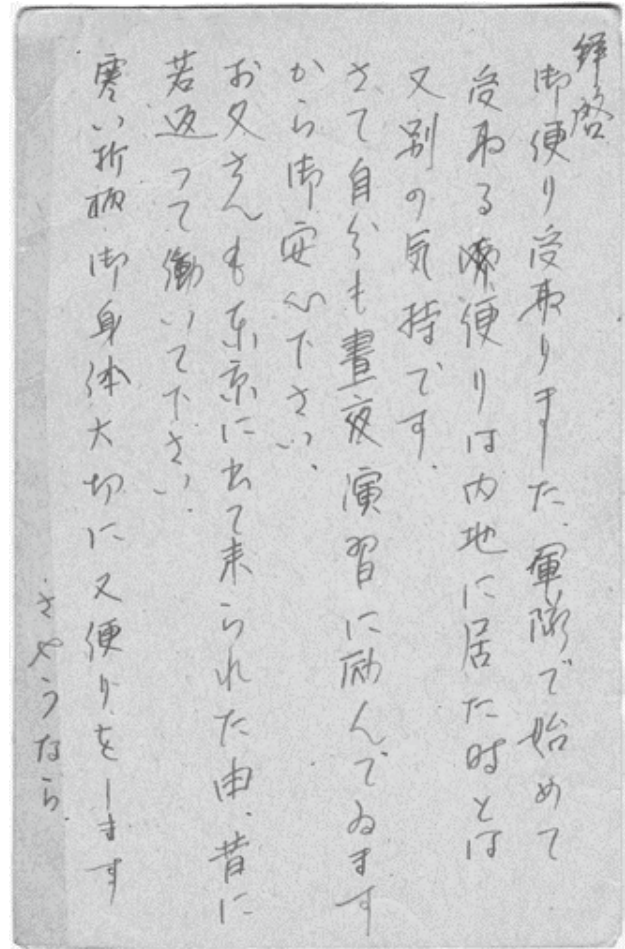 拝啓
御便り受取りました、軍隊で始めて
受取る便りは内地に居た時とは
又別の気持です.
さて自分も晝夜演習に励んでゐます
から御安心下さい、
お父さんも東京に出て来られた由、昔に
若返って働いて下さい.
寒い折柄御身体大切に又便りをします
さやうなら.